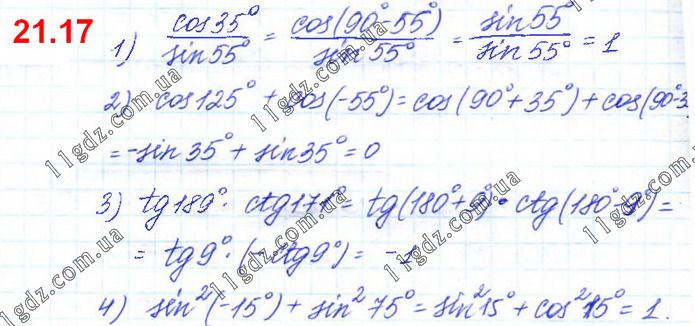 21.17
1) cos35°/sin55° = cos(90°-55°)/sin55° = sin55°/sin55° = 1
2) cos125° + cos(-55°) = cos(90°+35°) + cos(90°-3
= -sin35° + sin35° = 0
3) tg189° · ctg171° = tg(180°+9°) · ctg(180°-9°) =
= tg9° · (-ctg9°) = -1
4) sin²(-15°) + sin²75° = sin²15° + cos²15° = 1.
11gdz.com.ua
11gdz.com.ua
11gdz.com.ua
11gdz.com.ua
11gdz.com.ua
11gdz.com.ua